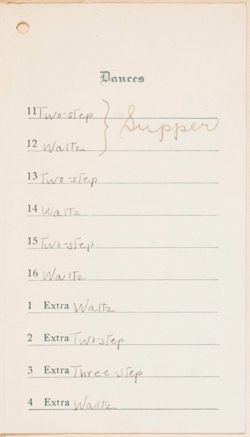 Dances
11 Two-step
Supper
12 Waltz
13 Two-step
14 Waltz
15 Two-step
16 Waltz
1 Extra Waltz
2 Extra Two-step
3 Extra Three-step
4 Extra Waltz